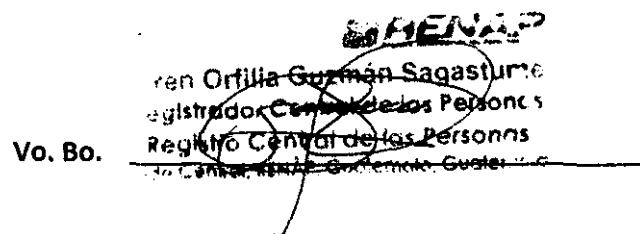 RENAP
ren Orfilia Guzmán Sagastume
egistrador Central de las Personas
Registro Central de las Personas
Vo. Bo.
Central, RENAP Guatemala, Guatem